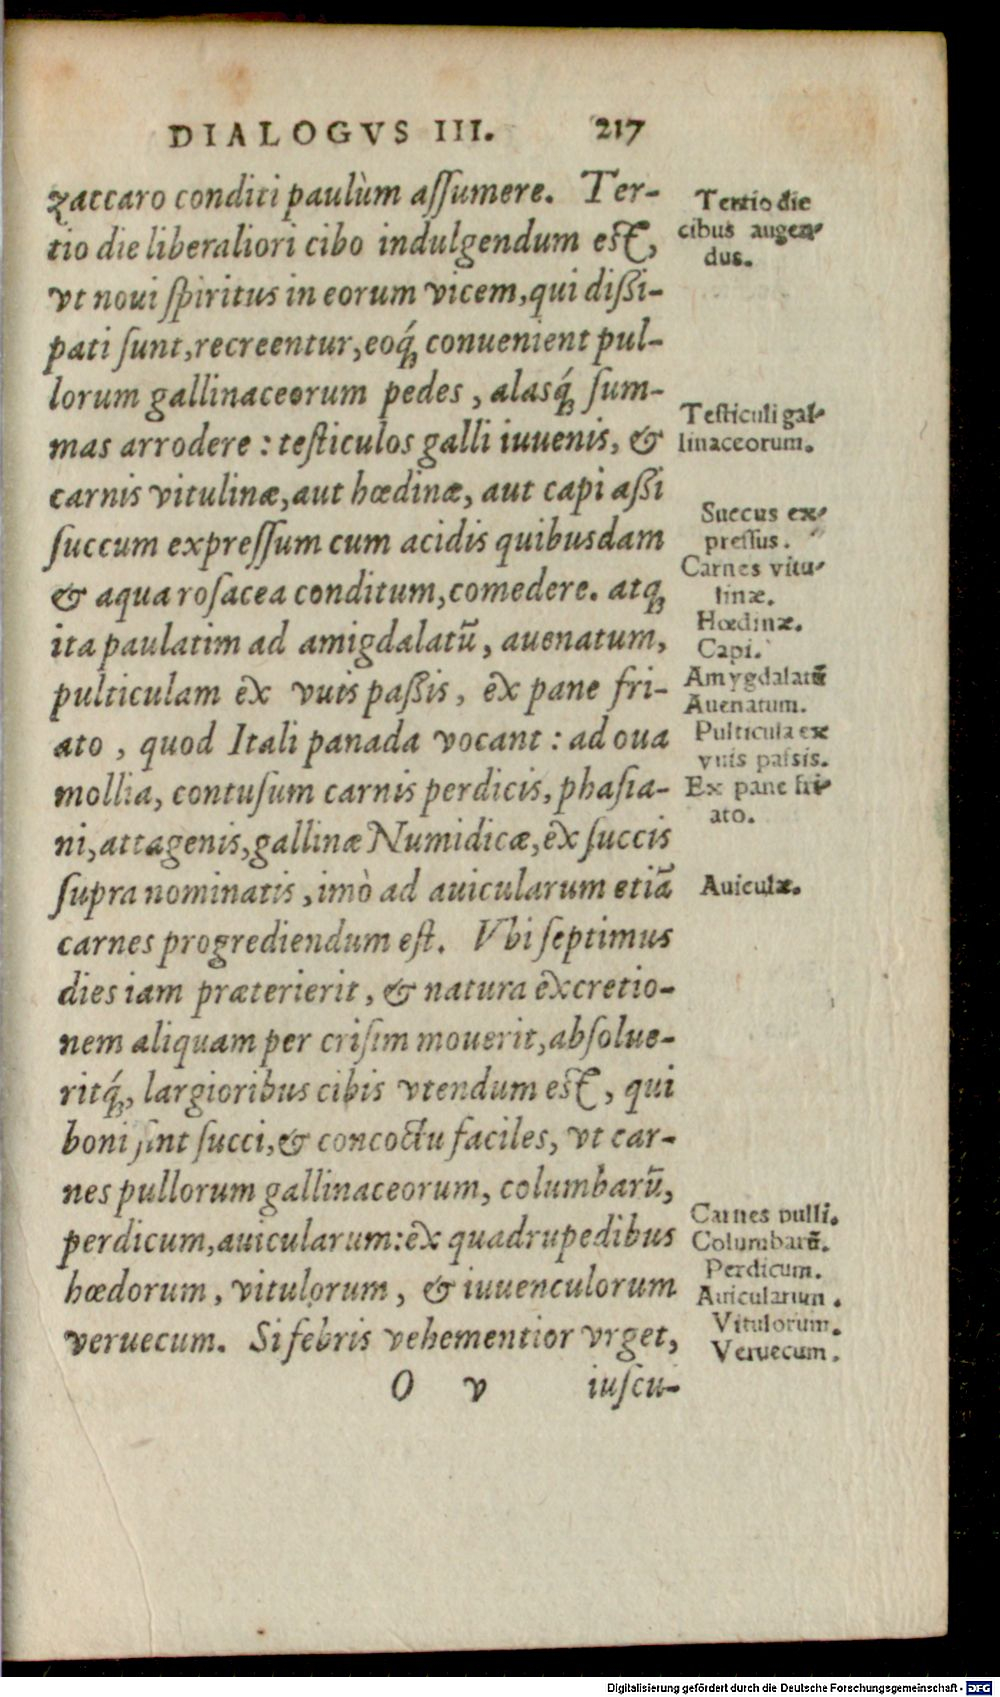 DIALOGVS III. 217
zaccaro conditi paulùm assumere. Ter-
tio die liberaliori cibo indulgendum est,
vt noui spiritus in eorum vicem, qui dißi-
pati sunt, recreentur, eoq́; conuenient pul-
lorum gallinaceorum pedes, alasq́; sum-
mas arrodere: testiculos galli iuuenis, &
carnis vitulinæ, aut hœdinæ, aut capi aßi
succum expressum cum acidis quibusdam
& aqua rosacea conditum, comedere. atq;
ita paulatim ad amigdalatũ, auenatum,
pulticulam ex vuis paßis, ex pane fri-
ato, quod Itali panada vocant: ad oua
mollia, contusum carnis perdicis, phasia-
ni, attagenis, gallinæ Numidicæ, ex succis
supra nominatis, imò ad auicularum etiã
carnes progrediendum est. Vbi septimus
dies iam præterierit, & natura excretio-
nem aliquam per crisim mouerit, absolue-
ritq́;, largioribus cibis vtendum est, qui
boni sint succi, & concoctu faciles, vt car-
nes pullorum gallinaceorum, columbarũ,
perdicum, auicularum: ex quadrupedibus
hœdorum, vitulorum, & iuuenculorum
veruecum. Si febris vehementior vrget,
O v iuscu-
Tertio die
cibus augen-
dus.
Testiculi gal-
linaceorum.
Succus ex-
pressus.
Carnes vitu-
linæ.
Hœdinæ.
Capi.
Amygdalatũ
Auenatum.
Pulticula ex
vuis passis.
Ex pane fri-
ato.
Auiculæ.
Carnes pulli.
Columbarũ.
Perdicum.
Auicularum.
Vitulorum.
Veruecum.
Digitalisierung gefördert durch die Deutsche Forschungsgemeinschaft - DFG